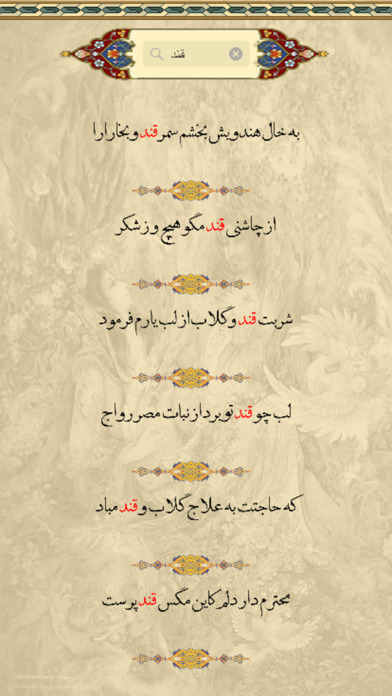 قند
به خال هندویش بخشم سمرقند و بخارا را
از چاشنی قند مگو هیچ و ز شکر
شربت قند و گلاب از لب یارم فرمود
لب چو قند تو برد از نبات مصر رواج
که حاجتت به علاج گلاب و قند مباد
محترم دار دلم کاین مگس قند پرست